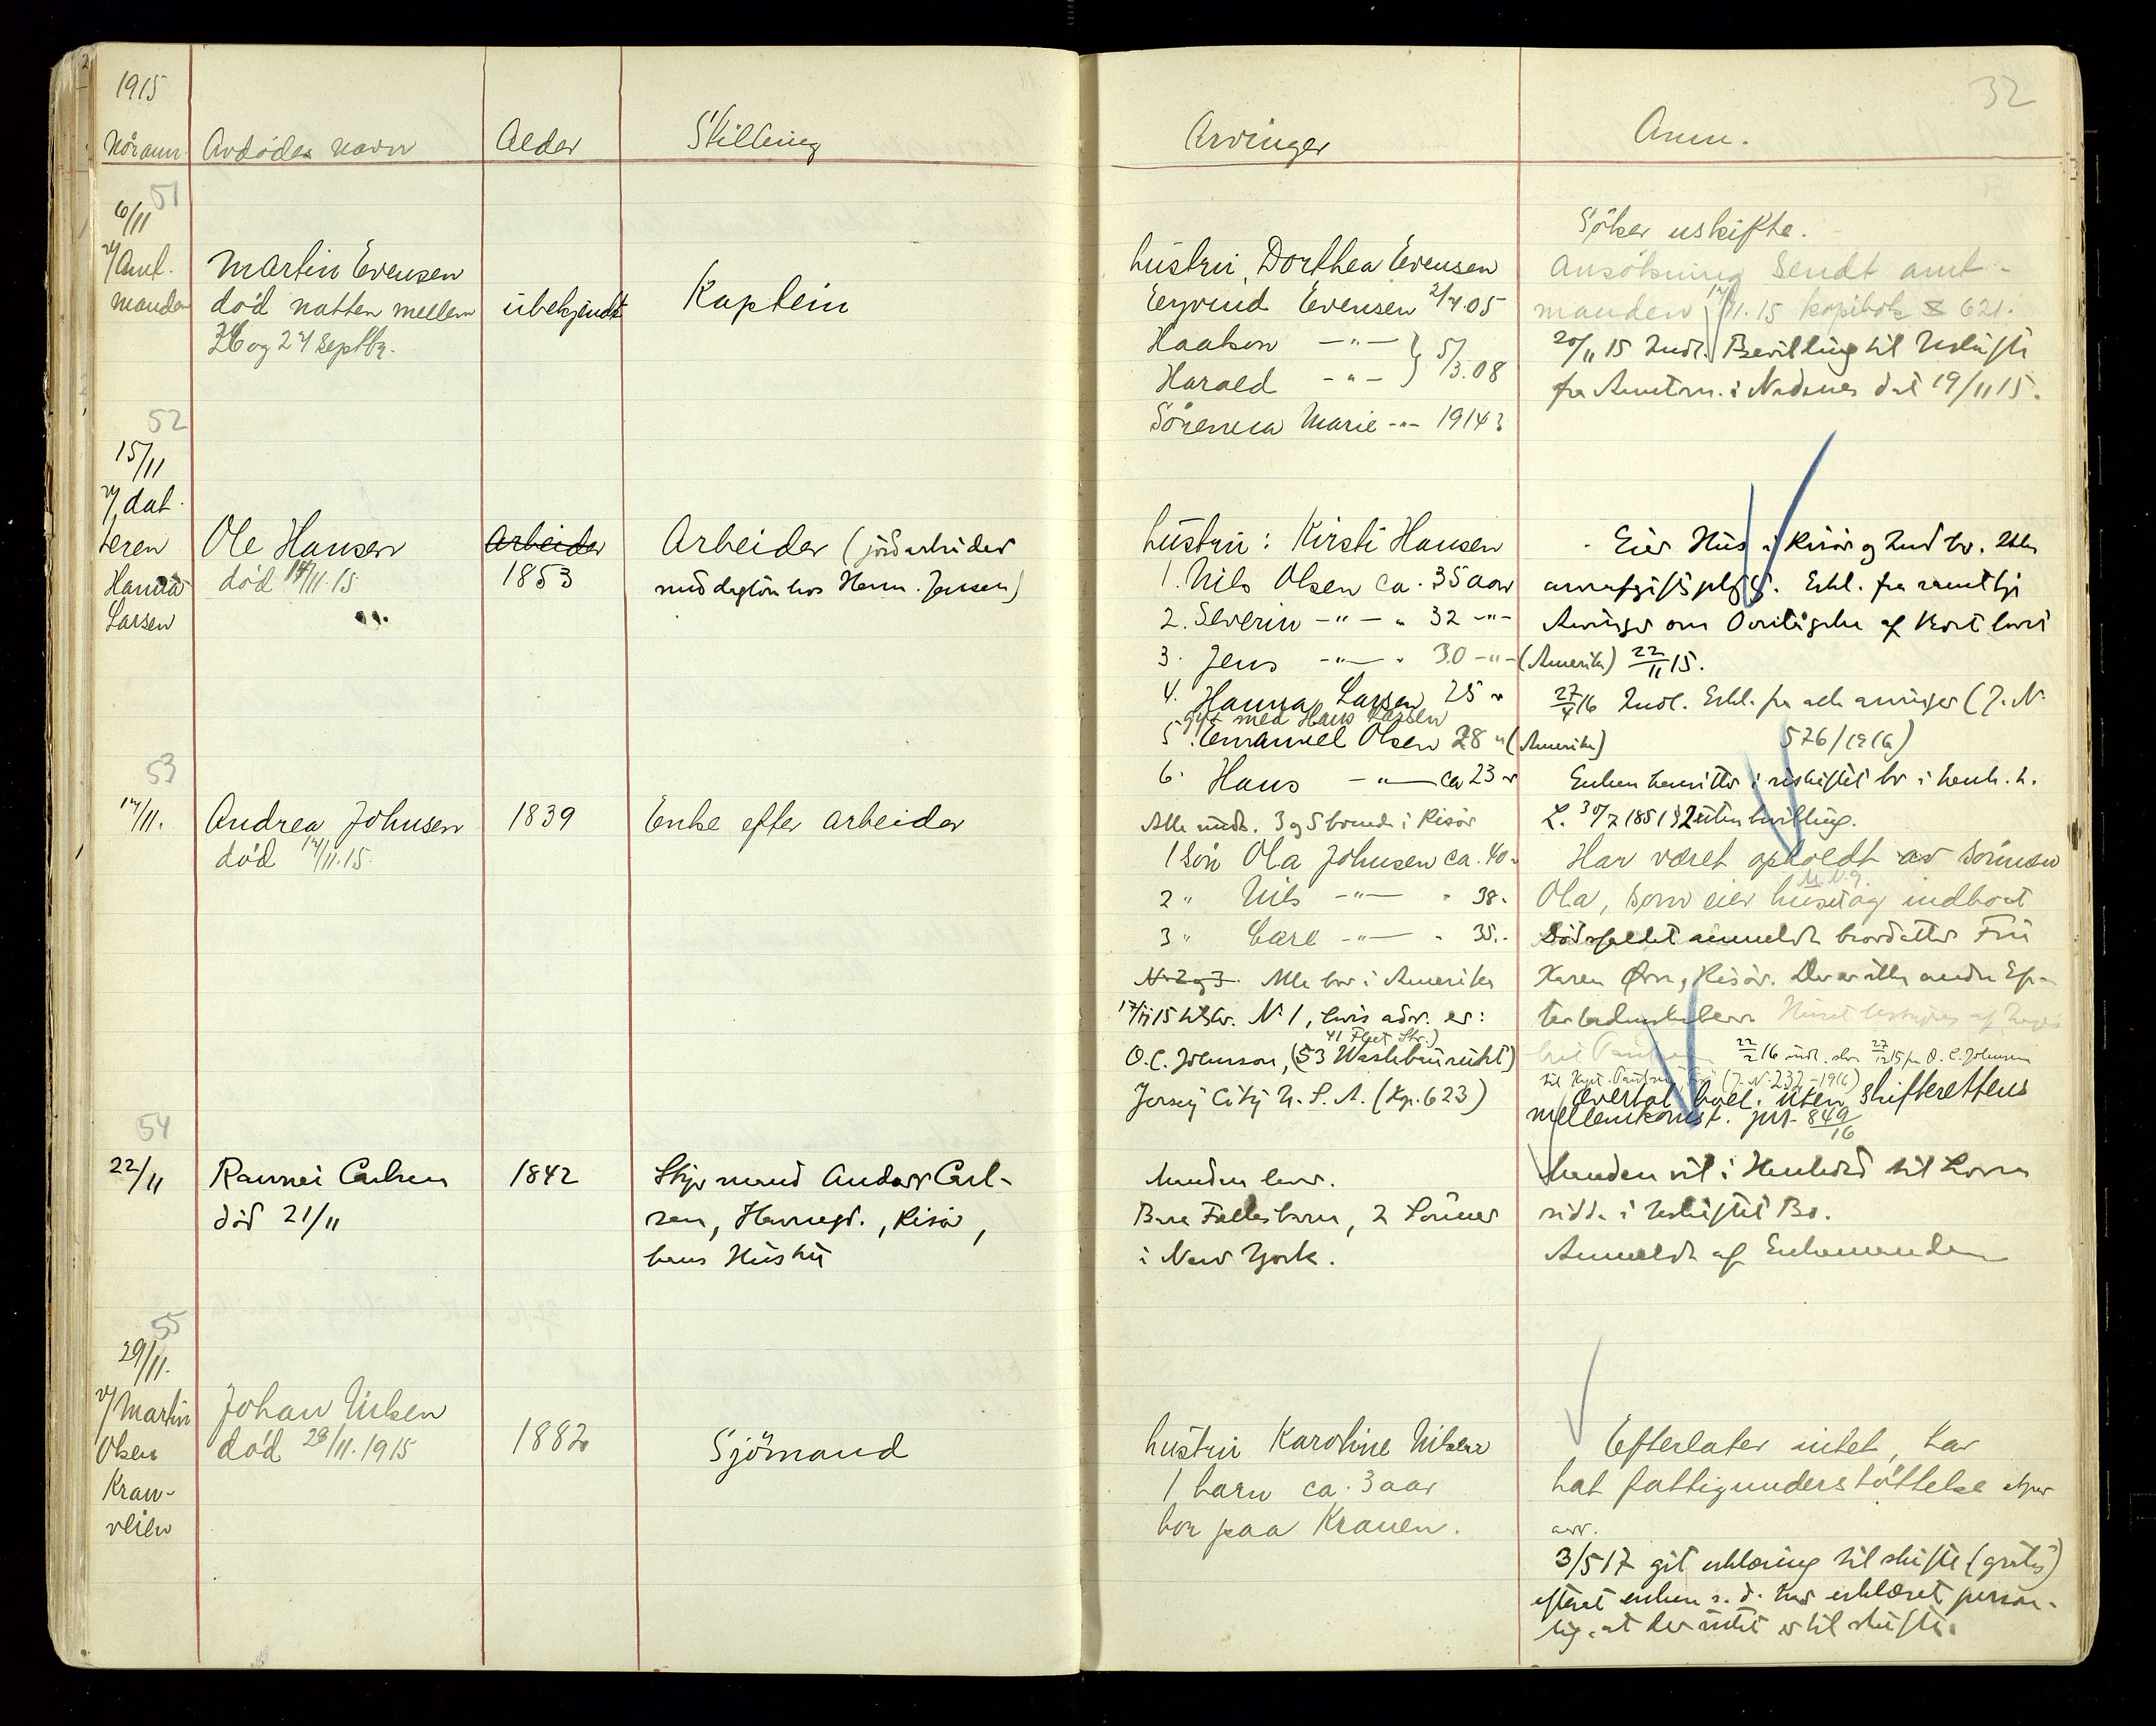 1915
32
Når anm. Avdødes navn Alder Stilling Arvinger Anm.
51
6/11
v/ Amt-
manden
Martin Evensen
død natten mellem
26 og 27 Septbr.
ubekjendt
Kaptein
hustru Dorthea Evensen
Eyvind Evensen 2/4 05
Haakon —"—
Harald —"— } 5/3.08
Sørenea Marie —"— 1914?
Søker uskifte.
Ansøkning sendt amt-
manden 17/11.15 kopibok 621.
20/11 15 Indl. Bevilling til Uskifte
fra Amtm. i Nedenes dat 19/11 15.
52
15/11
v/ dat-
teren
Hanna
Larsen
Ole Hansen
død 14/11.15
Arbeider
1853
Arbeider (jordarbeider
med dagløn hos Herm. Jensen)
hustru: Kirsti Hansen
1. Nils Olsen ca. 35 aar
2. Severin —"— " 32 —"—
3. Jens —"— " 30 —"— (Amerika)
4. Hanna Larsen 25 "
gift med Hans Larsen
5. Emanuel Olsen 28 " (Amerika)
6. Hans —"— ca 23 "
Alle undt. 3 og 5 boende i Risør
Eier Hus i Risør og Indbo. Ikke
arveafgiftspligtig. Erkl. fra samtlige
Arvinger om
22/11 15.
27/4 16 Indl. Erkl. fra alle arvinger (J. N.
576/1916)
Enken hensitter i uskiftet bo i henh. t.
L. 30/7 1851 § 2 uten bevilling.
53
17/11.
Andrea Johnsen
død 17/11.15.
1839
Enke efter arbeider
1 Søn Ola Johnsen ca. 40 "
2 " Nils —"— " 38 "
3 " Carl —"— " 35 "
N. 2 og 3. Alle bor i Amerika
17/11 15 tilskr. N. 1, hvis adr. er:
41 Fleet Str.)
O. C. Johnson, (53 Washburnuht)
Jersey City U. S. A. (Kp. 623)
Har været opholdt av sønnen
M. N. 9.
Ola, som eier hus og indbo
Dødsfaldet anmeldt Fru
Karen Ørn, Risør. Der er ikke andre Ef-
terladenskaber.
22/2 16 indl. skr. 27/12 15 fra O. C. Johnsen
(J. N. 232-1916)
Overtat boet uten skifterettens
mellemkomst. jnr. 849/16
54
22/11
Ramnei Carlsen
død 21/11
1842
Styrmand Anders Carl-
sen, Havnegt., Risør,
hans Hustru
Manden lever.
Bare Fællesbarn, 2 Sønner
i New York.
Manden vil i Henhold til Loven
sidde i Uskiftet Bo.
Anmeldt af Enkemanden
55
29/11.
v/ Martin
Olsen
Kran-
veien
Johan Nilsen
død 28/11.1915
1882
Sjömand
hustru Karoline Nilsen
1 barn ca. 3 aar
bor paa Kranen.
Efterlater intet, har
hat fattigunderstøttelse
aar.
3/5 17 git erklæring til skifte (gratis)
efterat enken s. d. har erklæret person-
lig, at der intet er til skifte.